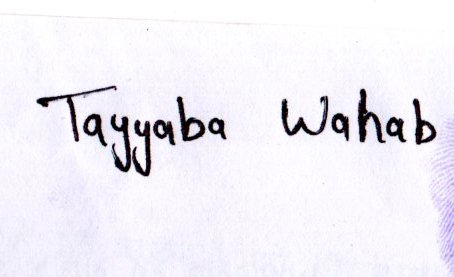 Tayyaba Wahab